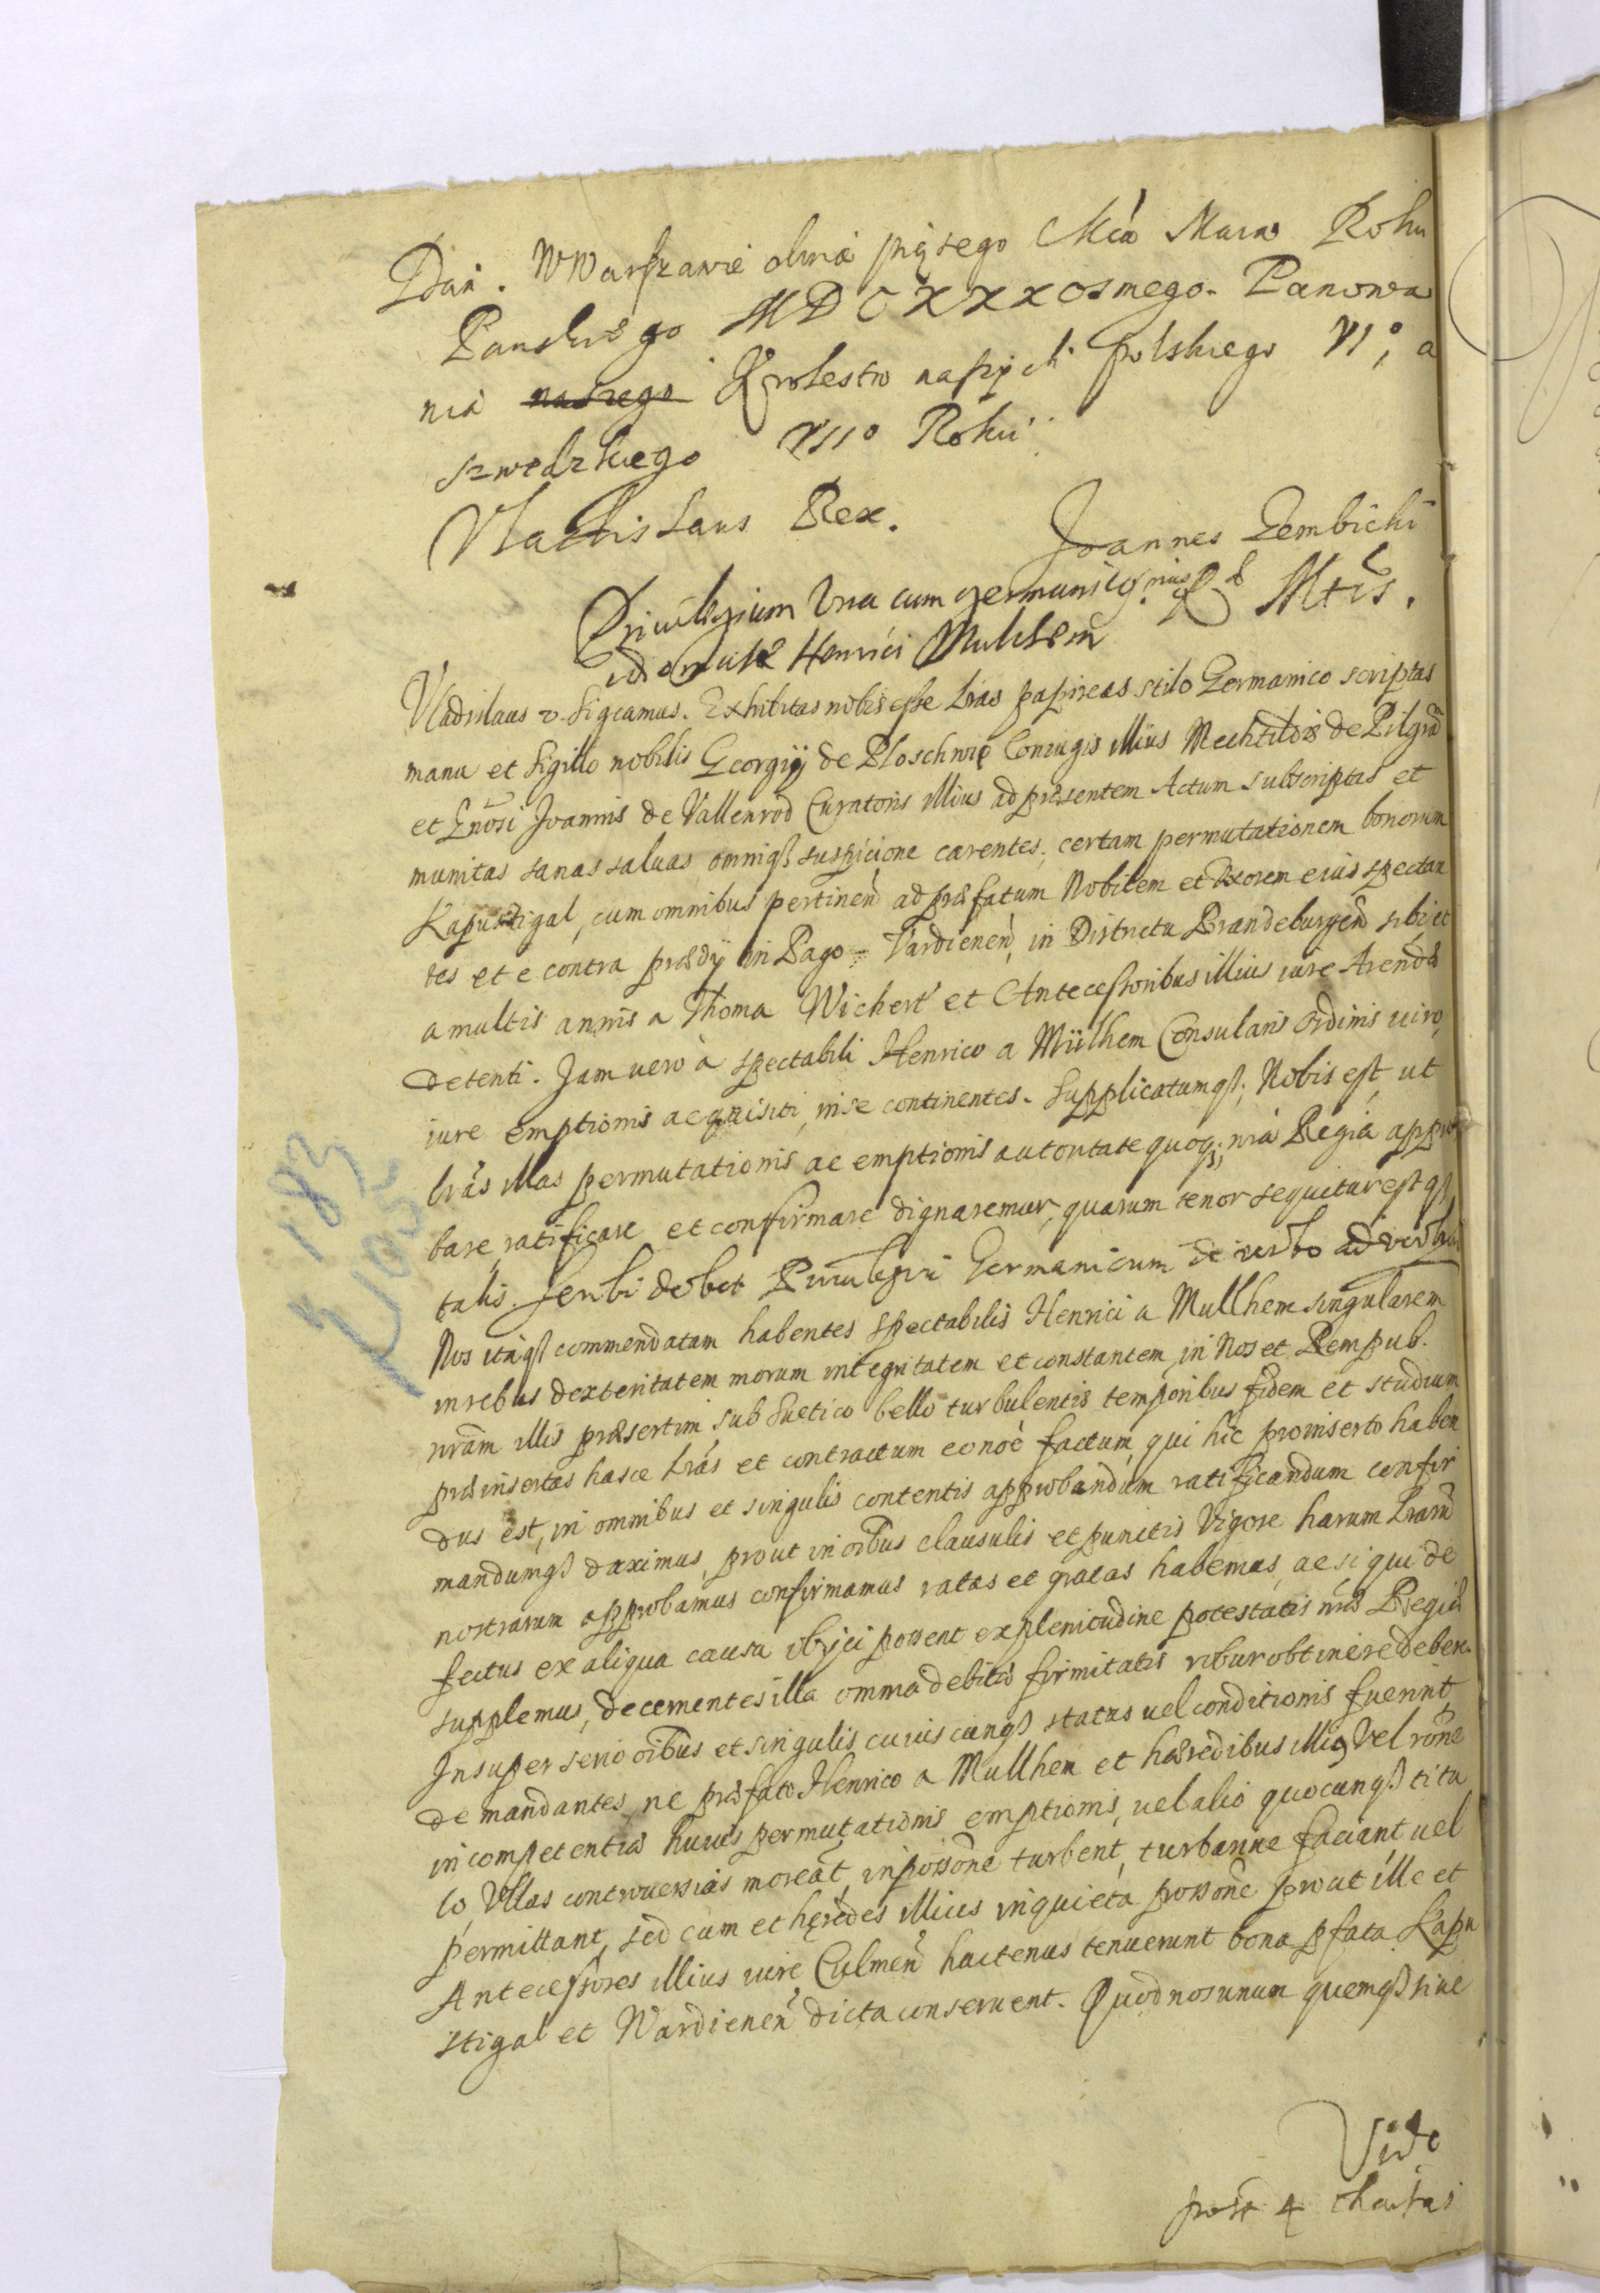 Dan. W Warszawie dnia piątego Mca Marca Roku
Panskiego MDCXXX osmego. Panowa
nia naszego Krolestw naszych polskiego VIº, a
szwedzkiego VIIº Roku
Vladislaus Rex.
Joannes Gembicki
Privilegium Una cum germanico
Mtis.
Henrici Mulhem
Vladislaus &. Significamus. Exhibitas nobis esse lras papireas stilo Germanico scriptas
manu et Sigillo nobilis Georgij de Ploschwiz Coniugis illius Mechtildis de Pilgrā
et Gnosi Joannis de Vallenrod Curatoris illius ad præsentem Actum subscriptas et
munitas sanas saluas omniq3 suspicione carentes, certam permutationem bonorum
Kapustigal, cum omnibus pertinen ad præfatum Nobilem et Uxorem eius spectan
tes et e contra prædij in Pago Vardienen, in Districtu Brandeburgen siti et
a multis annis a Thoma Wichert et Antecessoribus illius iure Arendæ
detenti. Jam vero à spectabili Henrico a Mülhem Consularis Ordinis viro,
iure emptionis acquisiti, in se continentes. Supplicatumq3; Nobis est, ut
lrās illas permutationis ac emptionis autoritate quoq; nrā Regiā appro
bare, ratificare et confirmare dignaremur, quarum tenor sequitur estq3
talis. Scribi debet Privilegium Germanicum de verbo ad verbum
Nos itaq3 commendatam habentes spectabilis Henrici a Mullhem singularem
in rebus dexteritatem morum integritatem et constantem in Nos et Rempub.
nram illis præsertim sub Suetico bello turbulentis temporibus fidem et studium
præinsertas hasce lrās et contractum eo noē factum, qui hic pro inserto haben
dus est, in omnibus et singulis contentis approbandum ratificandum confir
mandumq3 duximus, prout in oibus clausulis et punctis Vigore harum lrarū
nostrarum approbamus confirmamus ratas et gratas habemus, ac si qui de
fectus ex aliqua causa obijci possent ex plenitudine potestatis nræ Regiæ
supplemus, decernentes illa omnia debitæ firmitatis robur obtinere deben.
Insuper serio oibus et singulis cuiuscunq3 status vel conditionis fuerint,
demandantes, ne præfato Henrico a Mullhem et hæredibus illius Vel rōne
incompetentiæ huius permutationis emptionis, vel alio quocunq3 titu
lo, Ullas controuersias moveāt, in possōne turbent, turbarive faciant vel
permittant, sed eum et hęredes illius in quieta possōne prout ille et
Antecessores illius iure Culmen hactenus tenuerunt bona pfata Kapu
stigal et Wardienen dicta conseruent. Quod nos unum quemq3 sive
Vide
post 4 chartas
183